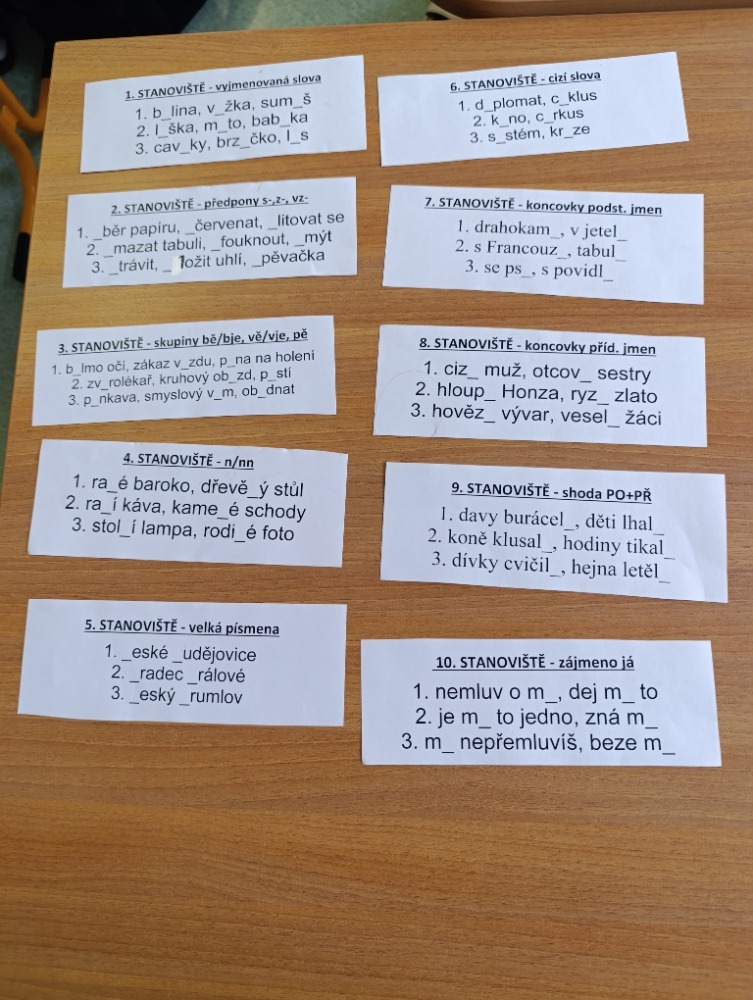 1. STANOVIŠTĚ - vyjmenovaná slova
1. b_lina, v_žka, sum_š
2. l_ška, m_to, bab_ka
3. cav_ky, brz_čko, l_s
2. STANOVIŠTĚ - předpony s-,z-, vz-
1. _běr papíru, _červenat, _litovat se
2. _mazat tabuli, _fouknout, _mýt
3. _trávit, _ložit uhlí, _pěvačka
3. STANOVIŠTĚ - skupiny bě/bje, vě/vje, pě
1. b_lmo očí, zákaz v_zdu, p_na na holení
2. zv_rolékař, kruhový ob_zd, p_stí
3. p_nkava, smyslový v_m, ob_dnat
4. STANOVIŠTĚ - n/nn
1. ra_é baroko, dřevě_ý stůl
2. ra_í káva, kame_é schody
3. stol_í lampa, rodi_é foto
5. STANOVIŠTĚ - velká písmena
1. _eské _udějovice
2. _radec _rálové
3. _eský _rumlov
6. STANOVIŠTĚ - cizí slova
1. d_plomat, c_klus
2. k_no, c_rkus
3. s_stém, kr_ze
7. STANOVIŠTĚ - koncovky podst. jmen
1. drahokam_, v jetel_
2. s Francouz_, tabul_
3. se ps_, s povídl_
8. STANOVIŠTĚ - koncovky příd. jmen
1. ciz_ muž, otcov_ sestry
2. hloup_ Honza, ryz_ zlato
3. hověz_ vývar, vesel_ žáci
9. STANOVIŠTĚ - shoda PO+PŘ
1. davy burácel_, děti lhal_
2. koně klusal_, hodiny tikal_
3. dívky cvičil_, hejna letěl_
10. STANOVIŠTĚ - zájmeno já
1. nemluv o m_, dej m_ to
2. je m_ to jedno, zná m_
3. m_ nepřemluvíš, beze m_